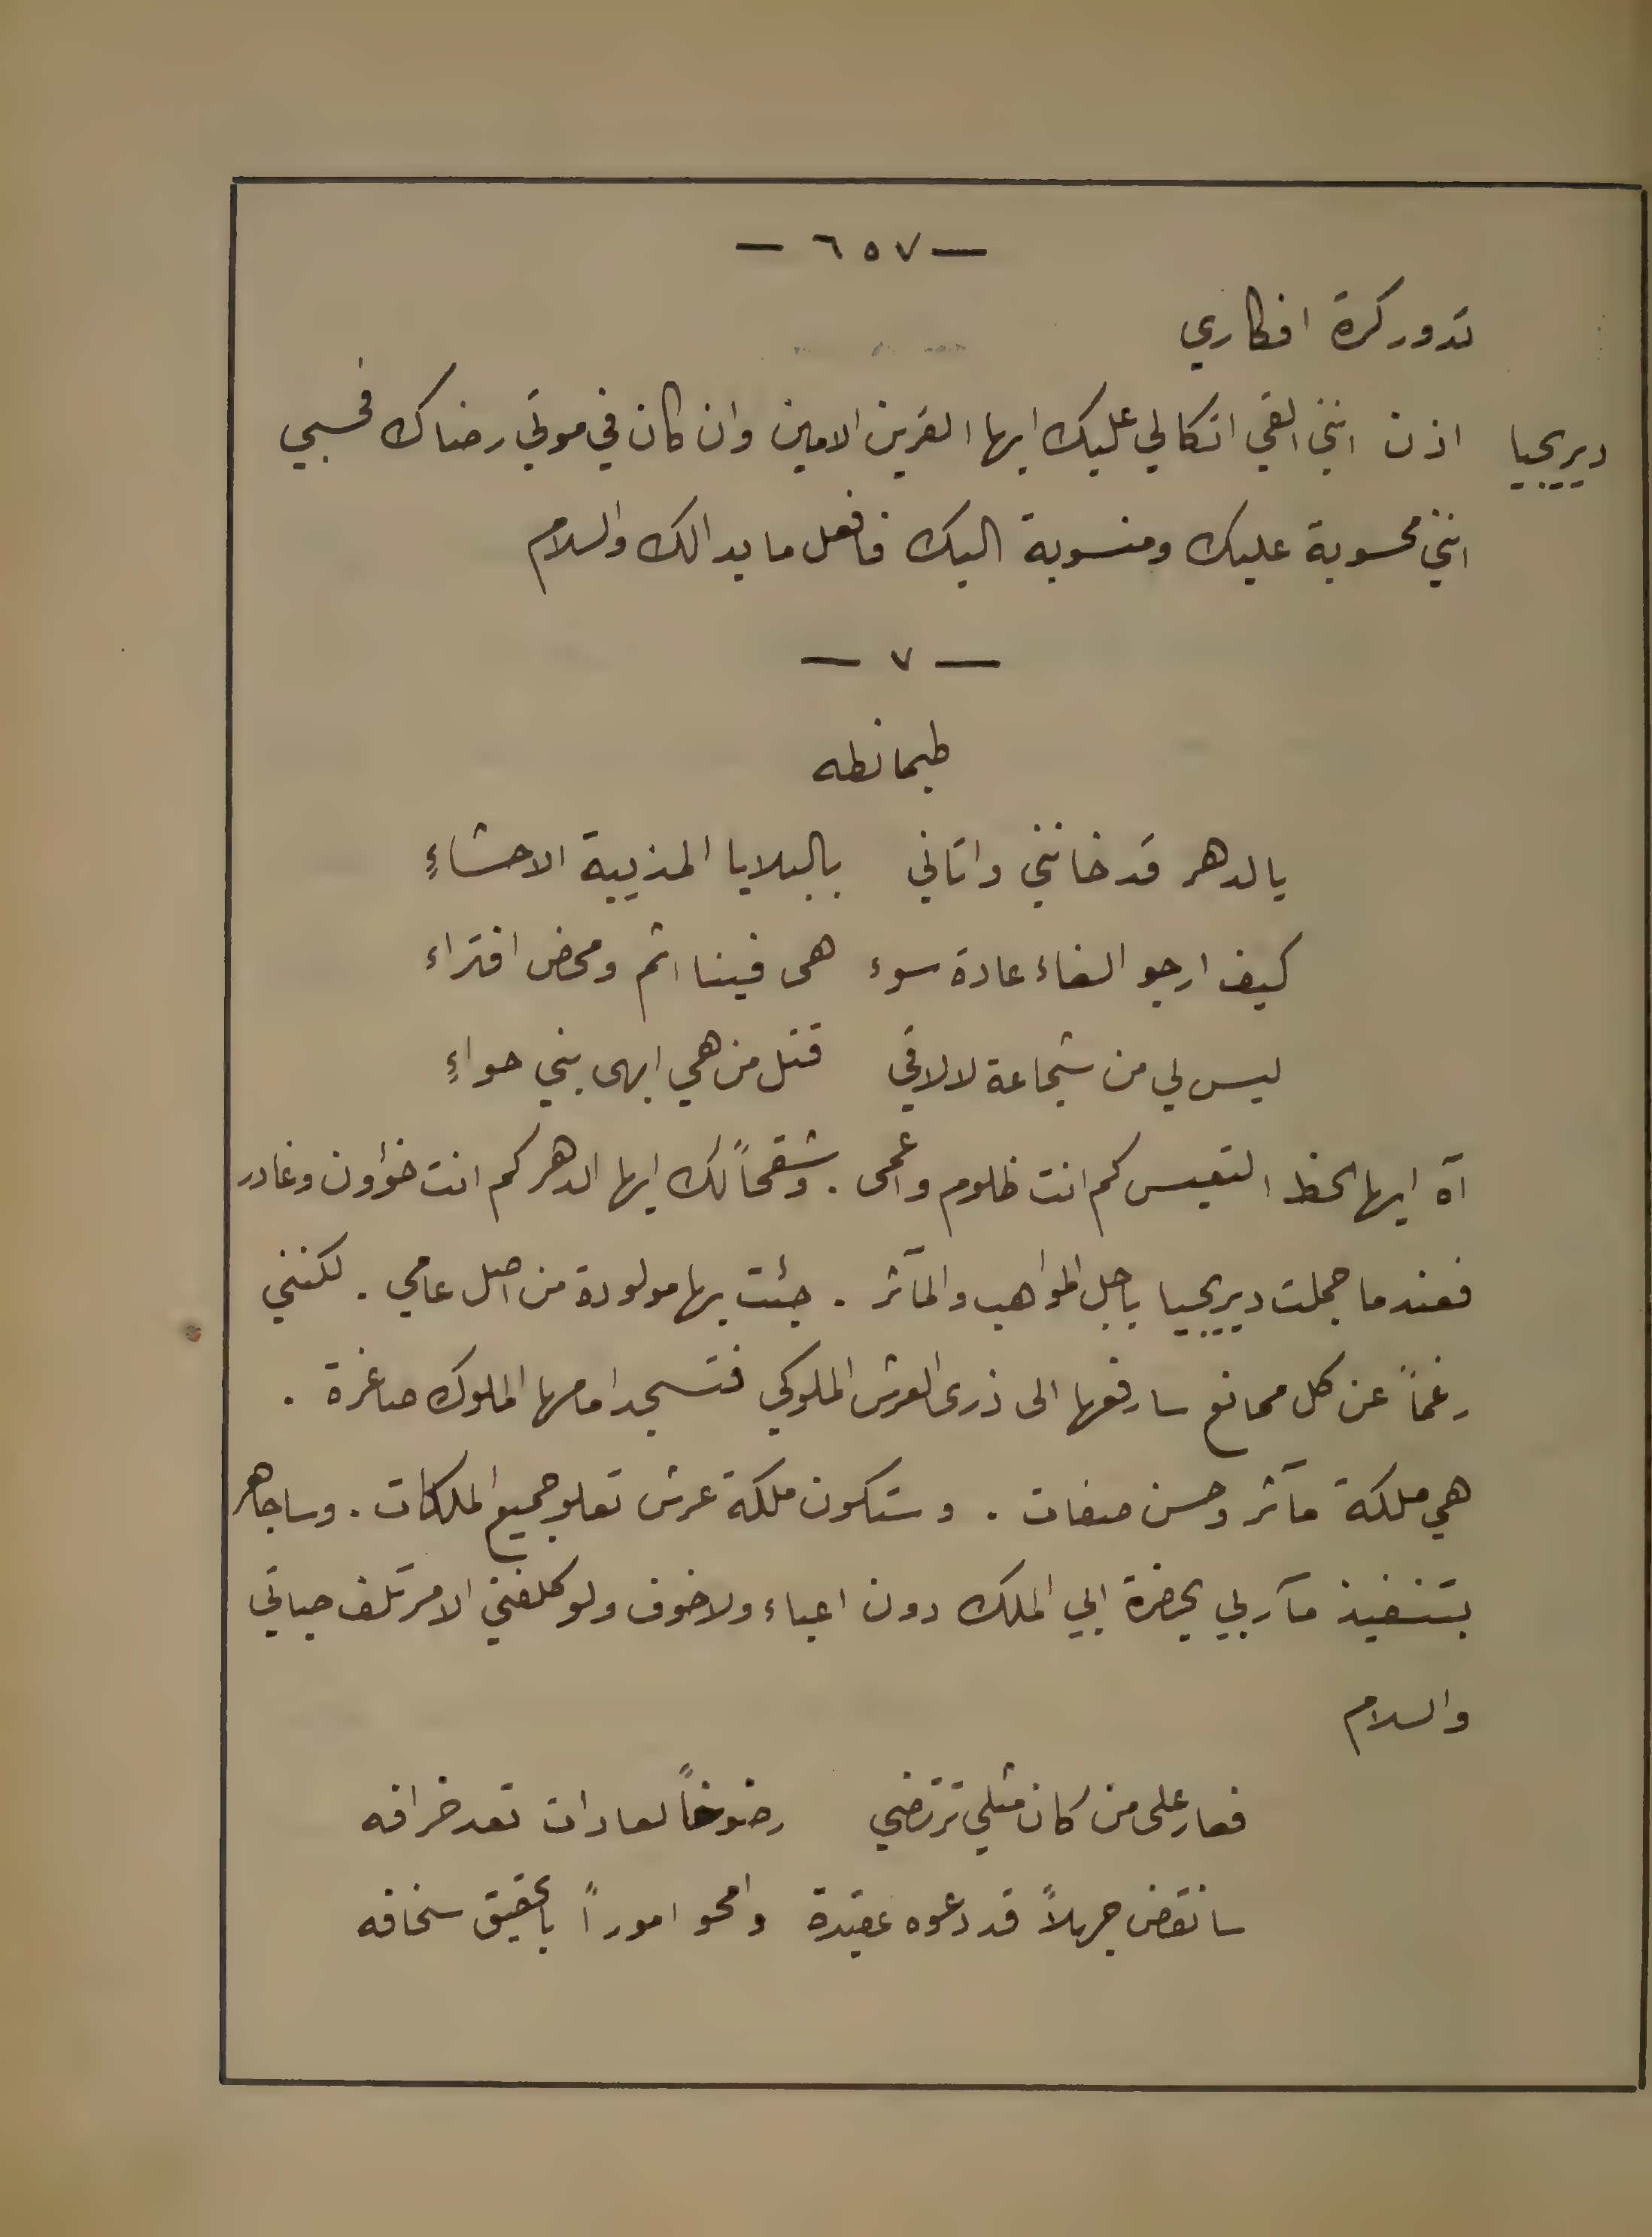 — ٦٥٧ —
تدور كرة افكاري
ديريجيا اذن انني القي اتكالي عليك ايها القرين الامين وان كان في موتي رضاك فحسبي
انني محسوبة عليك ومنسوبة اليك فافعل ما بدا لك والسلام
— ٧ —
طيمانطه
يا لدهر قد خانني واتاني بالبلايا المذيبة الاحشاءِ
كيف ارجو الغاء عادة سوء هي فينا اثم ومحض افتراء
ليس لي من شجاعة لالاقي قتل من هي ابهى بني حواءِ
آه ايها الحظ التعيس كم انت ظلوم واعمى . وشقحاً لك ايها الدهر كم انت خؤون وغادر
فعندما جملت ديريجيا باجل المواهب والمآثر . جئت بها مولودة من اصل عامي . لكنني
رغماً عن كل ممانع سارفعها الى ذرى العرش الملوكي فتسجد امامها الملوك صاغرة .
هي ملكة مآثر وحسن صفات . وستكون ملكة عرش تعلو جميع الملكات . وساجاهر
بتنفيذ مآربي بحضرة ابي الملك دون اعياء ولا خوف ولو كلفني الامر تلف حياتي
والسلام
فعار على من كان مثلي ترتضي رضوخاً لعادات تعد خرافه
سانقض جهلاً قد دعوه عقيدة وامحو اموراً بالحقيق سخافه